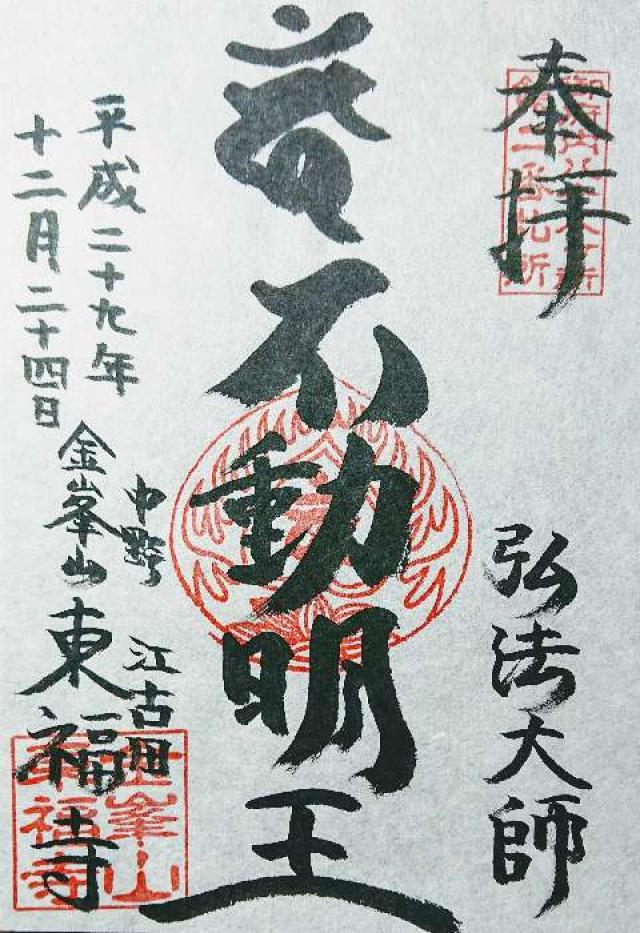 奉拝
弘法大師
不動明王
平成二十九年
十二月二十四日
中野 江古田
金峯山 東福寺
金峯山
東福寺